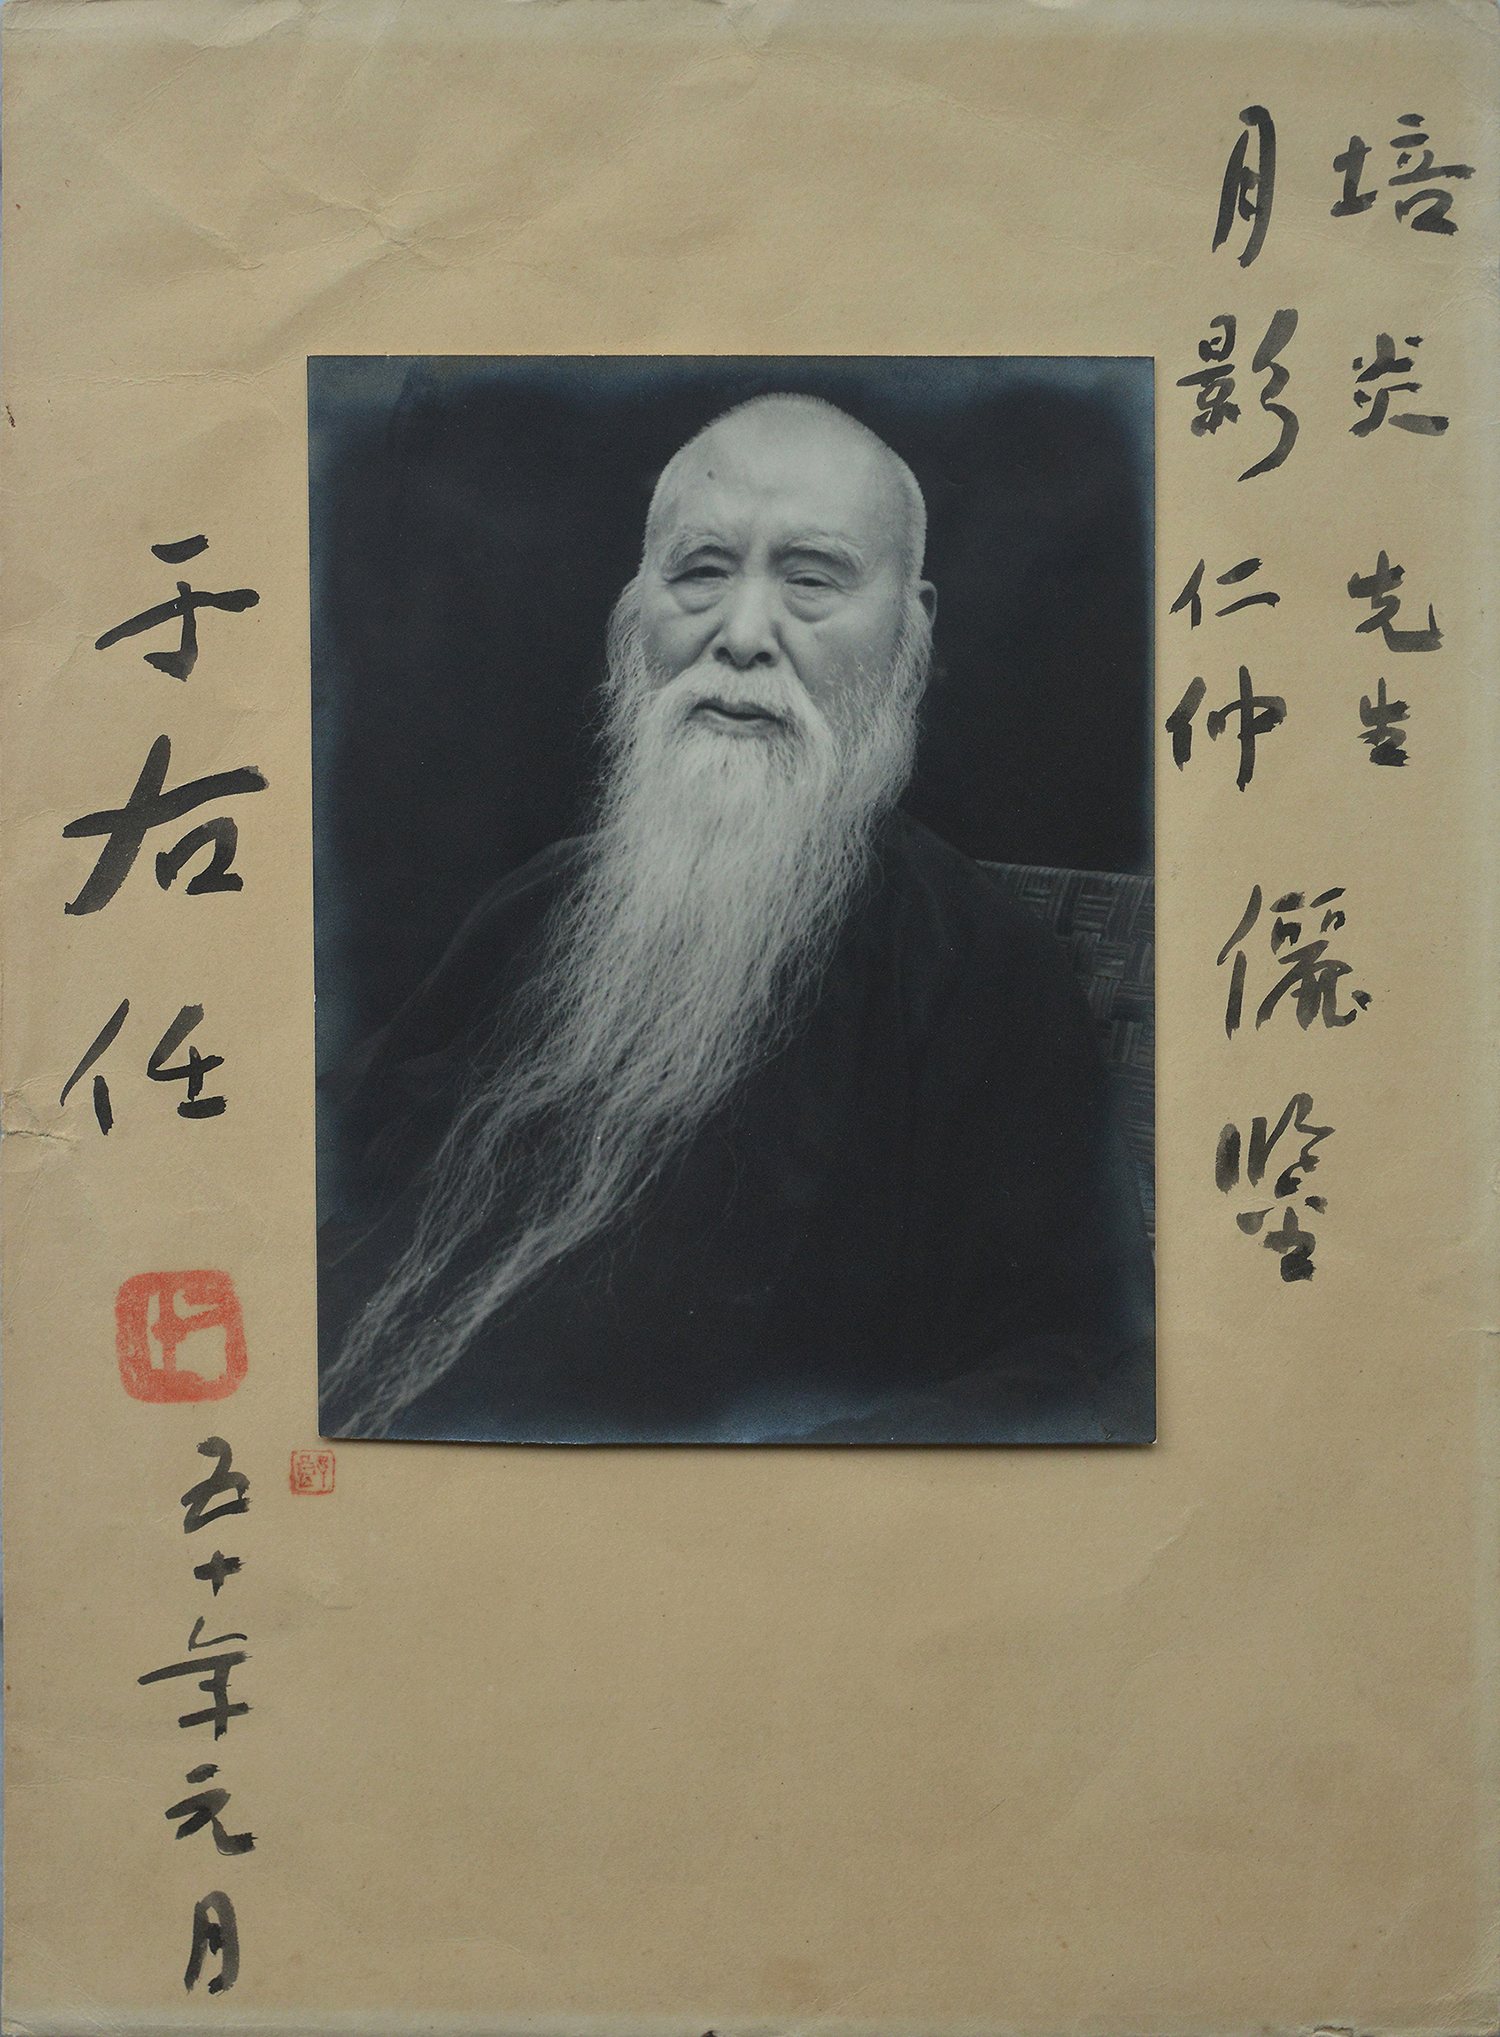 培炎先生
月影仁仲儷鑒
于右任
五十年元月